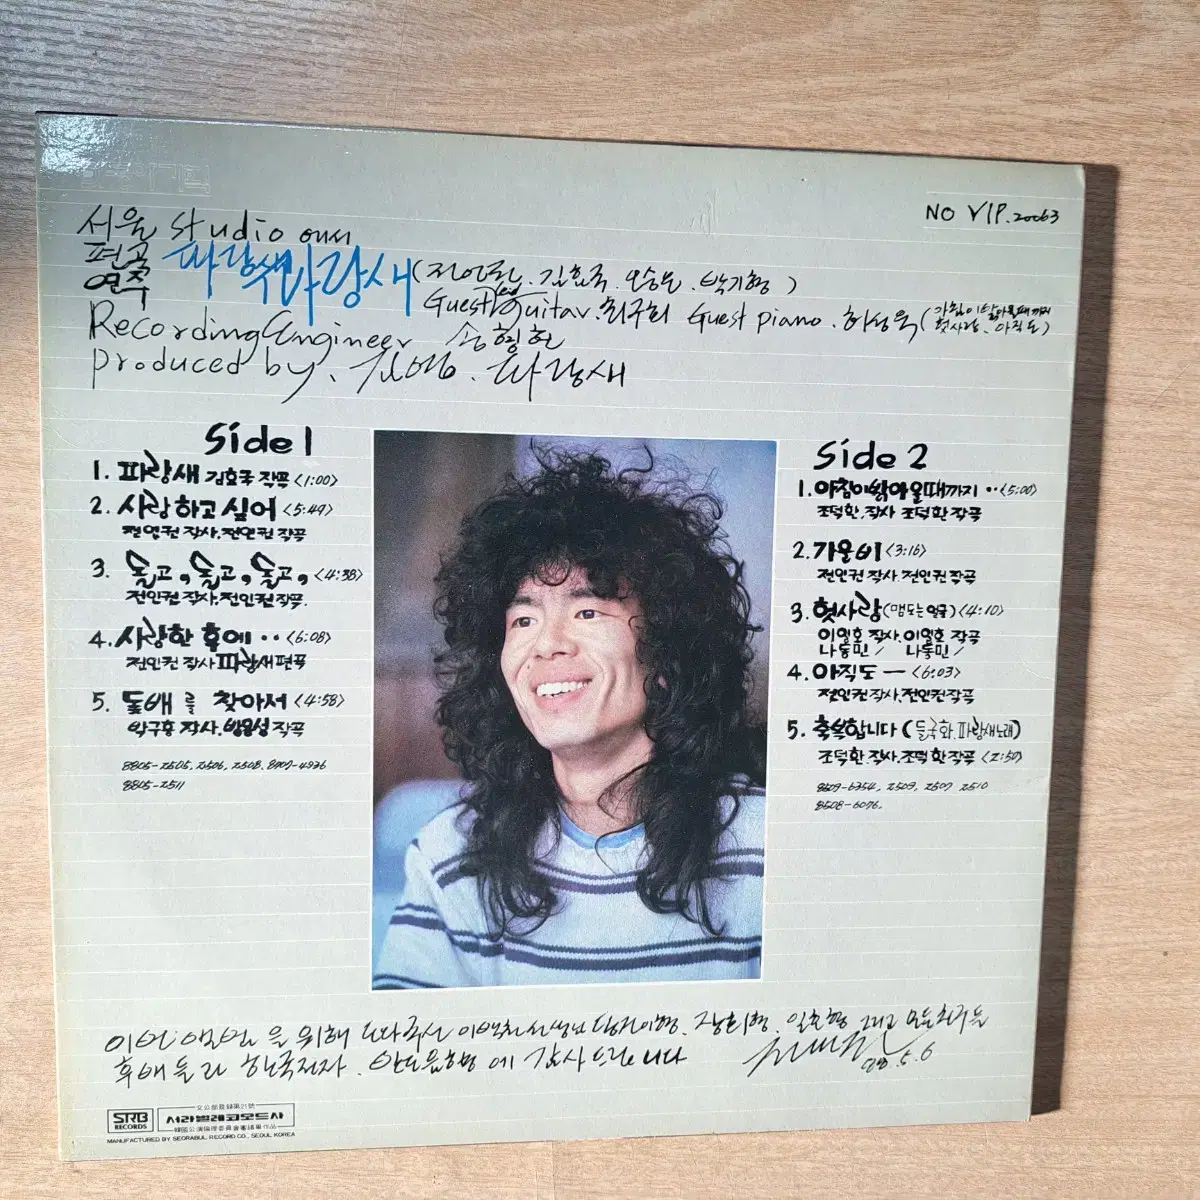 NO VIP.20063
서울 studio 에서
편곡
연주
파랑새
파랑새 (전인권. 김효국. 오승은. 박기형)
Guest Guitar. 최구희 Guest piano. 하성욱 (아침이 밝아올때까지
헛사랑. 아직도)
Recording Engineer 송형헌
produced by. 파랑새
Side 1
1. 파랑새 김효국 작곡 <1:00>
2. 사랑하고 싶어 <5:49>
전인권 작사. 전인권 작곡
3. 돌고, 돌고, 돌고, <4:38>
전인권 작사. 전인권 작곡.
4. 사랑한 후에.. <6:08>
전인권 작사 파랑새 편곡
5. 돛배를 찾아서 <4:58>
작사. 작곡
8805-2505, 2506, 2508. 8707-4936
8805-2511
Side 2
1. 아침이 밝아올때까지.. <5:00>
조덕환. 작사 조덕환 작곡
2. 가을비 <3:16>
전인권 작사. 전인권 작곡
3. 헛사랑 (맴도는 얼굴) <4:10>
이영호 작사. 이영호 작곡
나동민 〃 나동민 〃
4. 아직도 — <6:03>
전인권 작사. 전인권 작곡
5. 축복합니다 (들국화. 파랑새노래)
조덕환. 작사. 조덕환 작곡 <2:50>
8509-6354, 2509, 2507 2510
8508-6076.
을 위해 도와주신
후배들과 한국전자. 에 감사드립니다
88.5.6
SRB
RECORDS
文公部登録第21號
서라벌레코오드사
韓國公演倫理委員會審議畢作品
MANUFACTURED BY SEORABUL RECORD CO., SEOUL KOREA